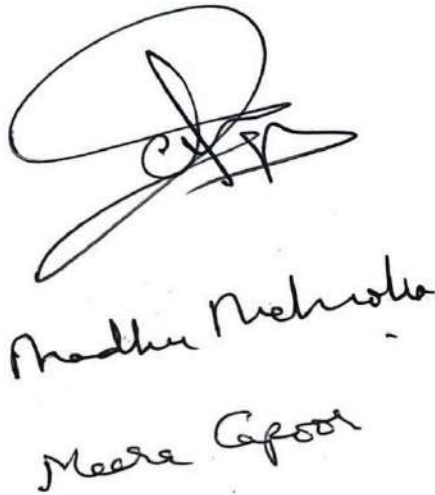 Madhu Mehrotra
Meera Capoor